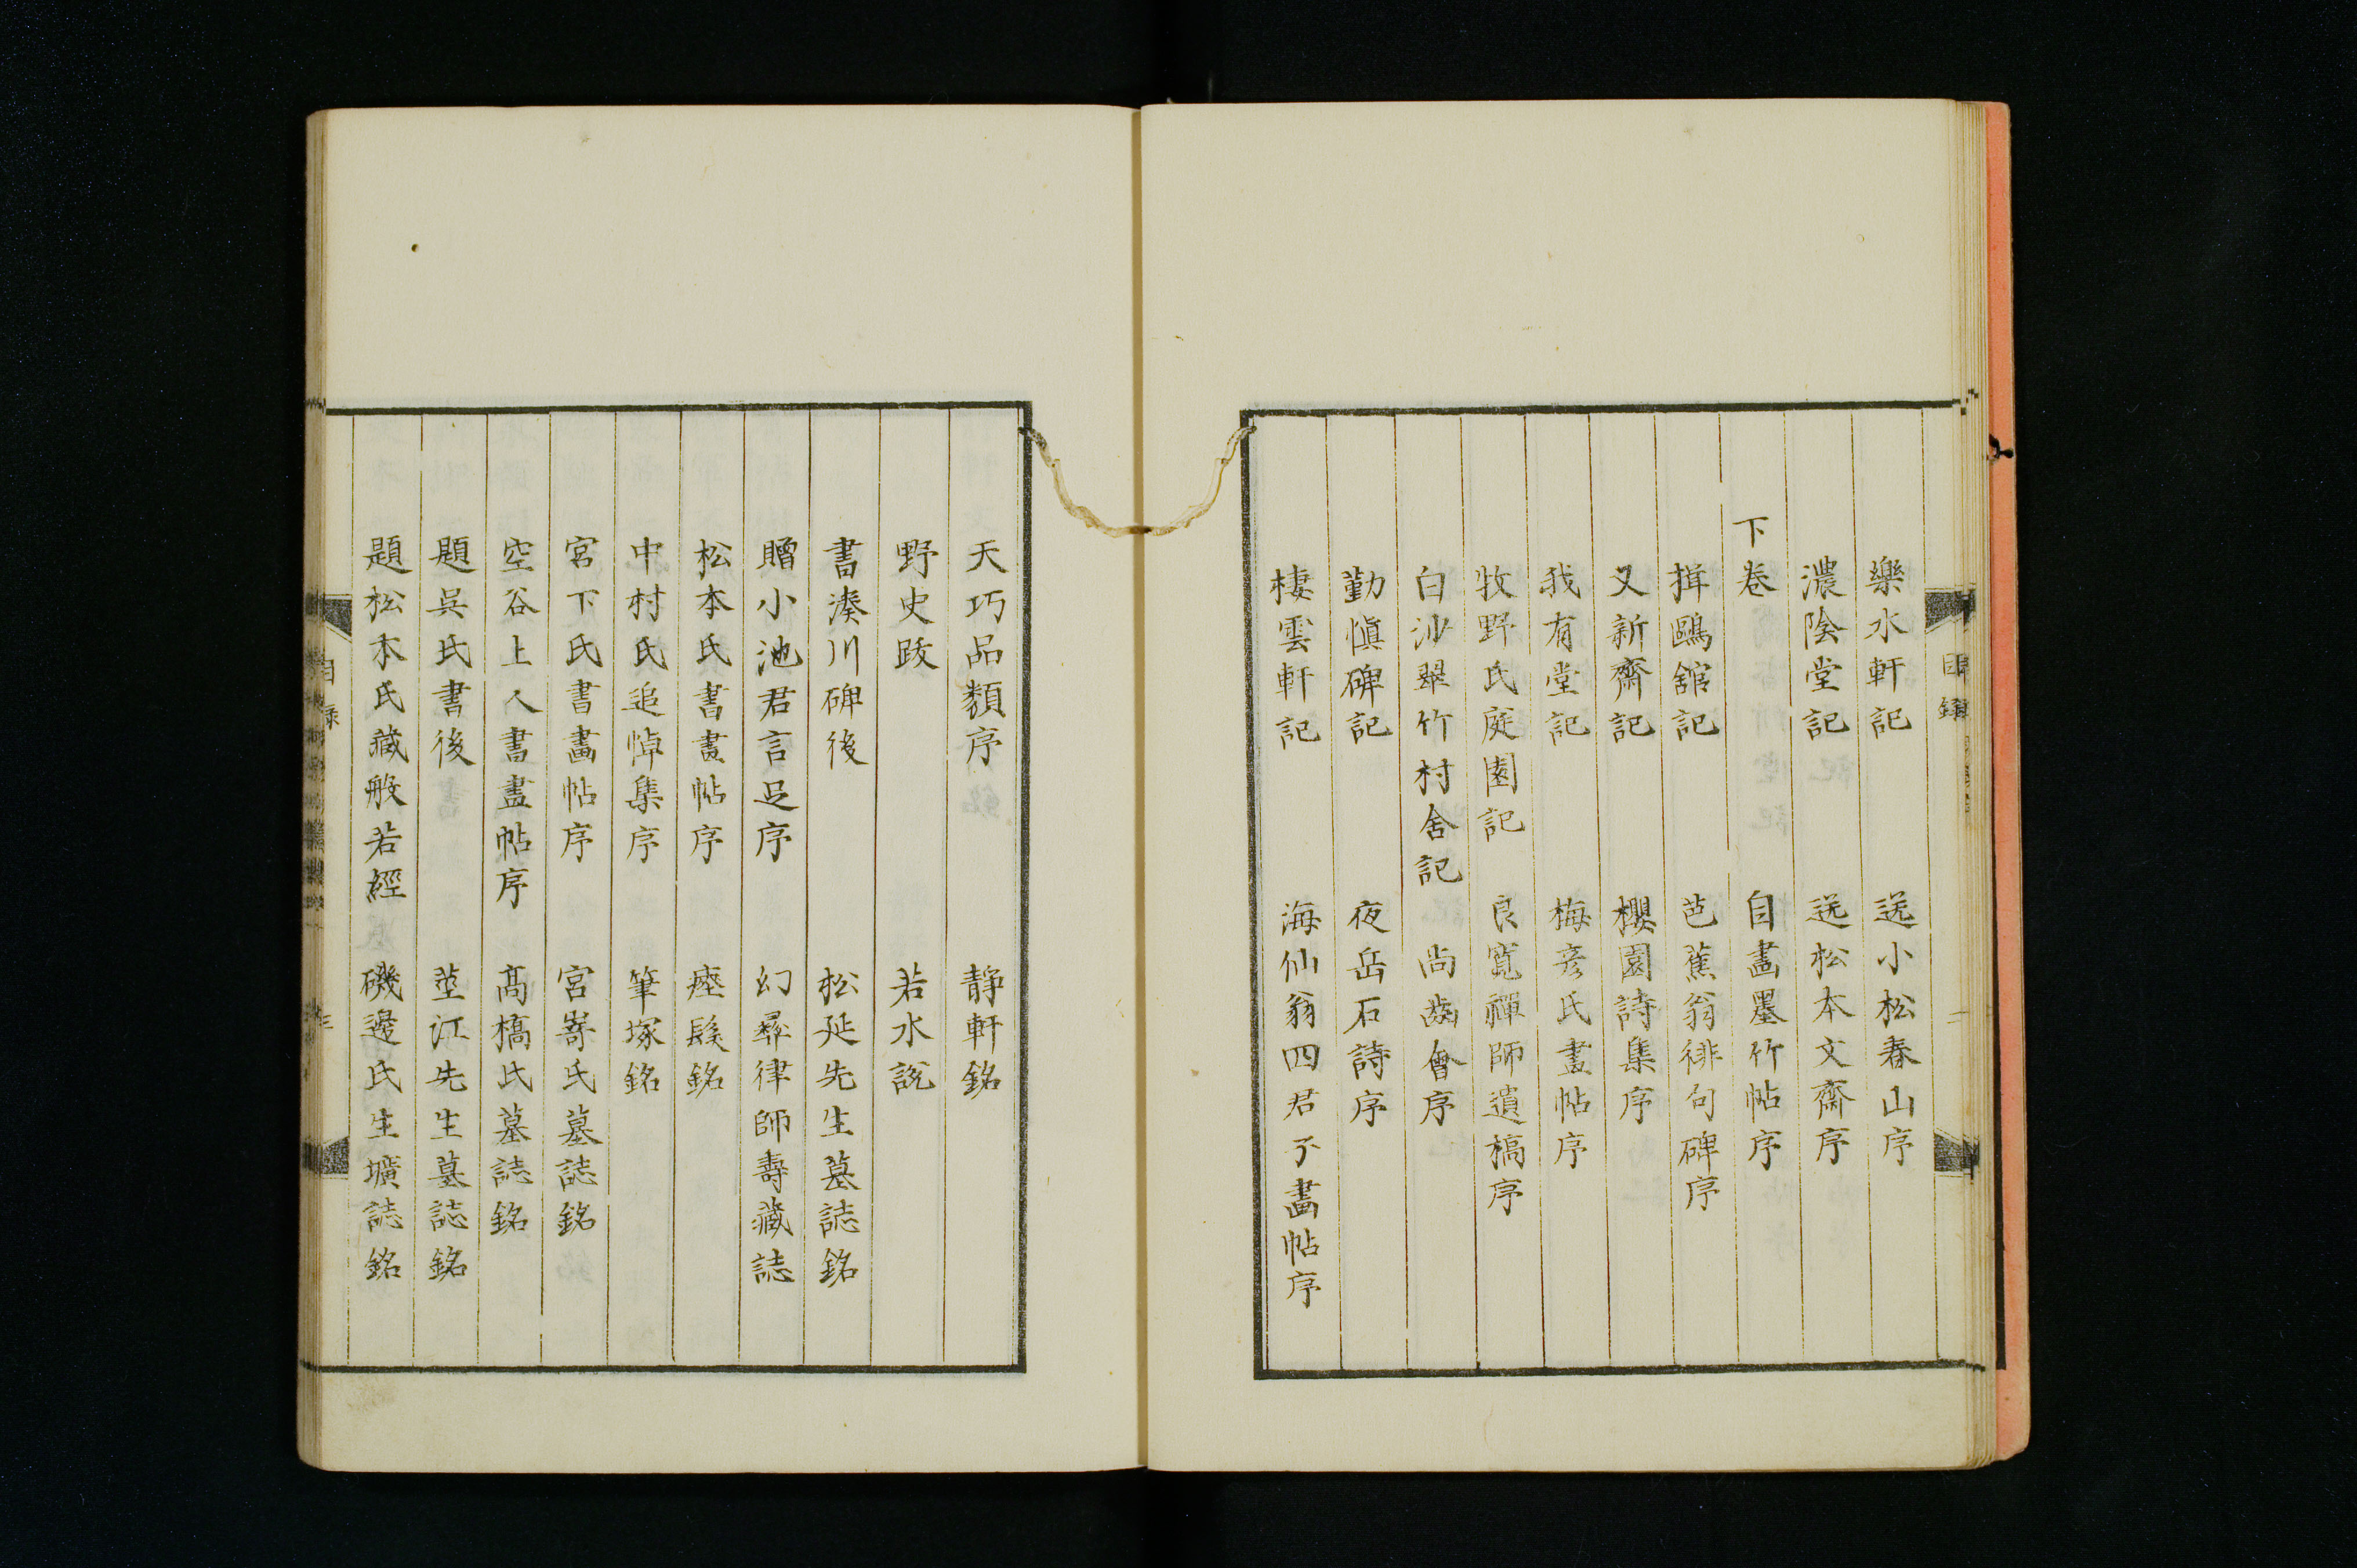 樂水軒記　送小松春山序
濃陰堂記　送松本文齋序
下卷　自畫墨竹帖序
揖鷗舘記　芭蕉翁徘句碑序
又新齋記　櫻園詩集序
我有堂記　梅彦氏畫帖序
牧野氏庭園記　良寛禪師遺槁序
白沙翠竹村舍記　尚齒會序
勤愼碑記　夜岳石詩序
棲雲軒記　海仙翁四君子畫帖序
天巧品類序　静軒銘
野史跋　若水說
書湊川碑後　松延先生墓誌銘
贈小池君言足序　幻彜律師壽藏誌
松本氏書畫帖序　瘞髮銘
中村氏追悼集序　筆塚銘
宮下氏書畫帖序　宮嵜氏墓誌銘
空谷上人書畫帖序　髙橋氏墓誌銘
題呉氏書後　莖江先生墓誌銘
題松本氏藏般若經　磯邊氏生壙誌銘
目錄